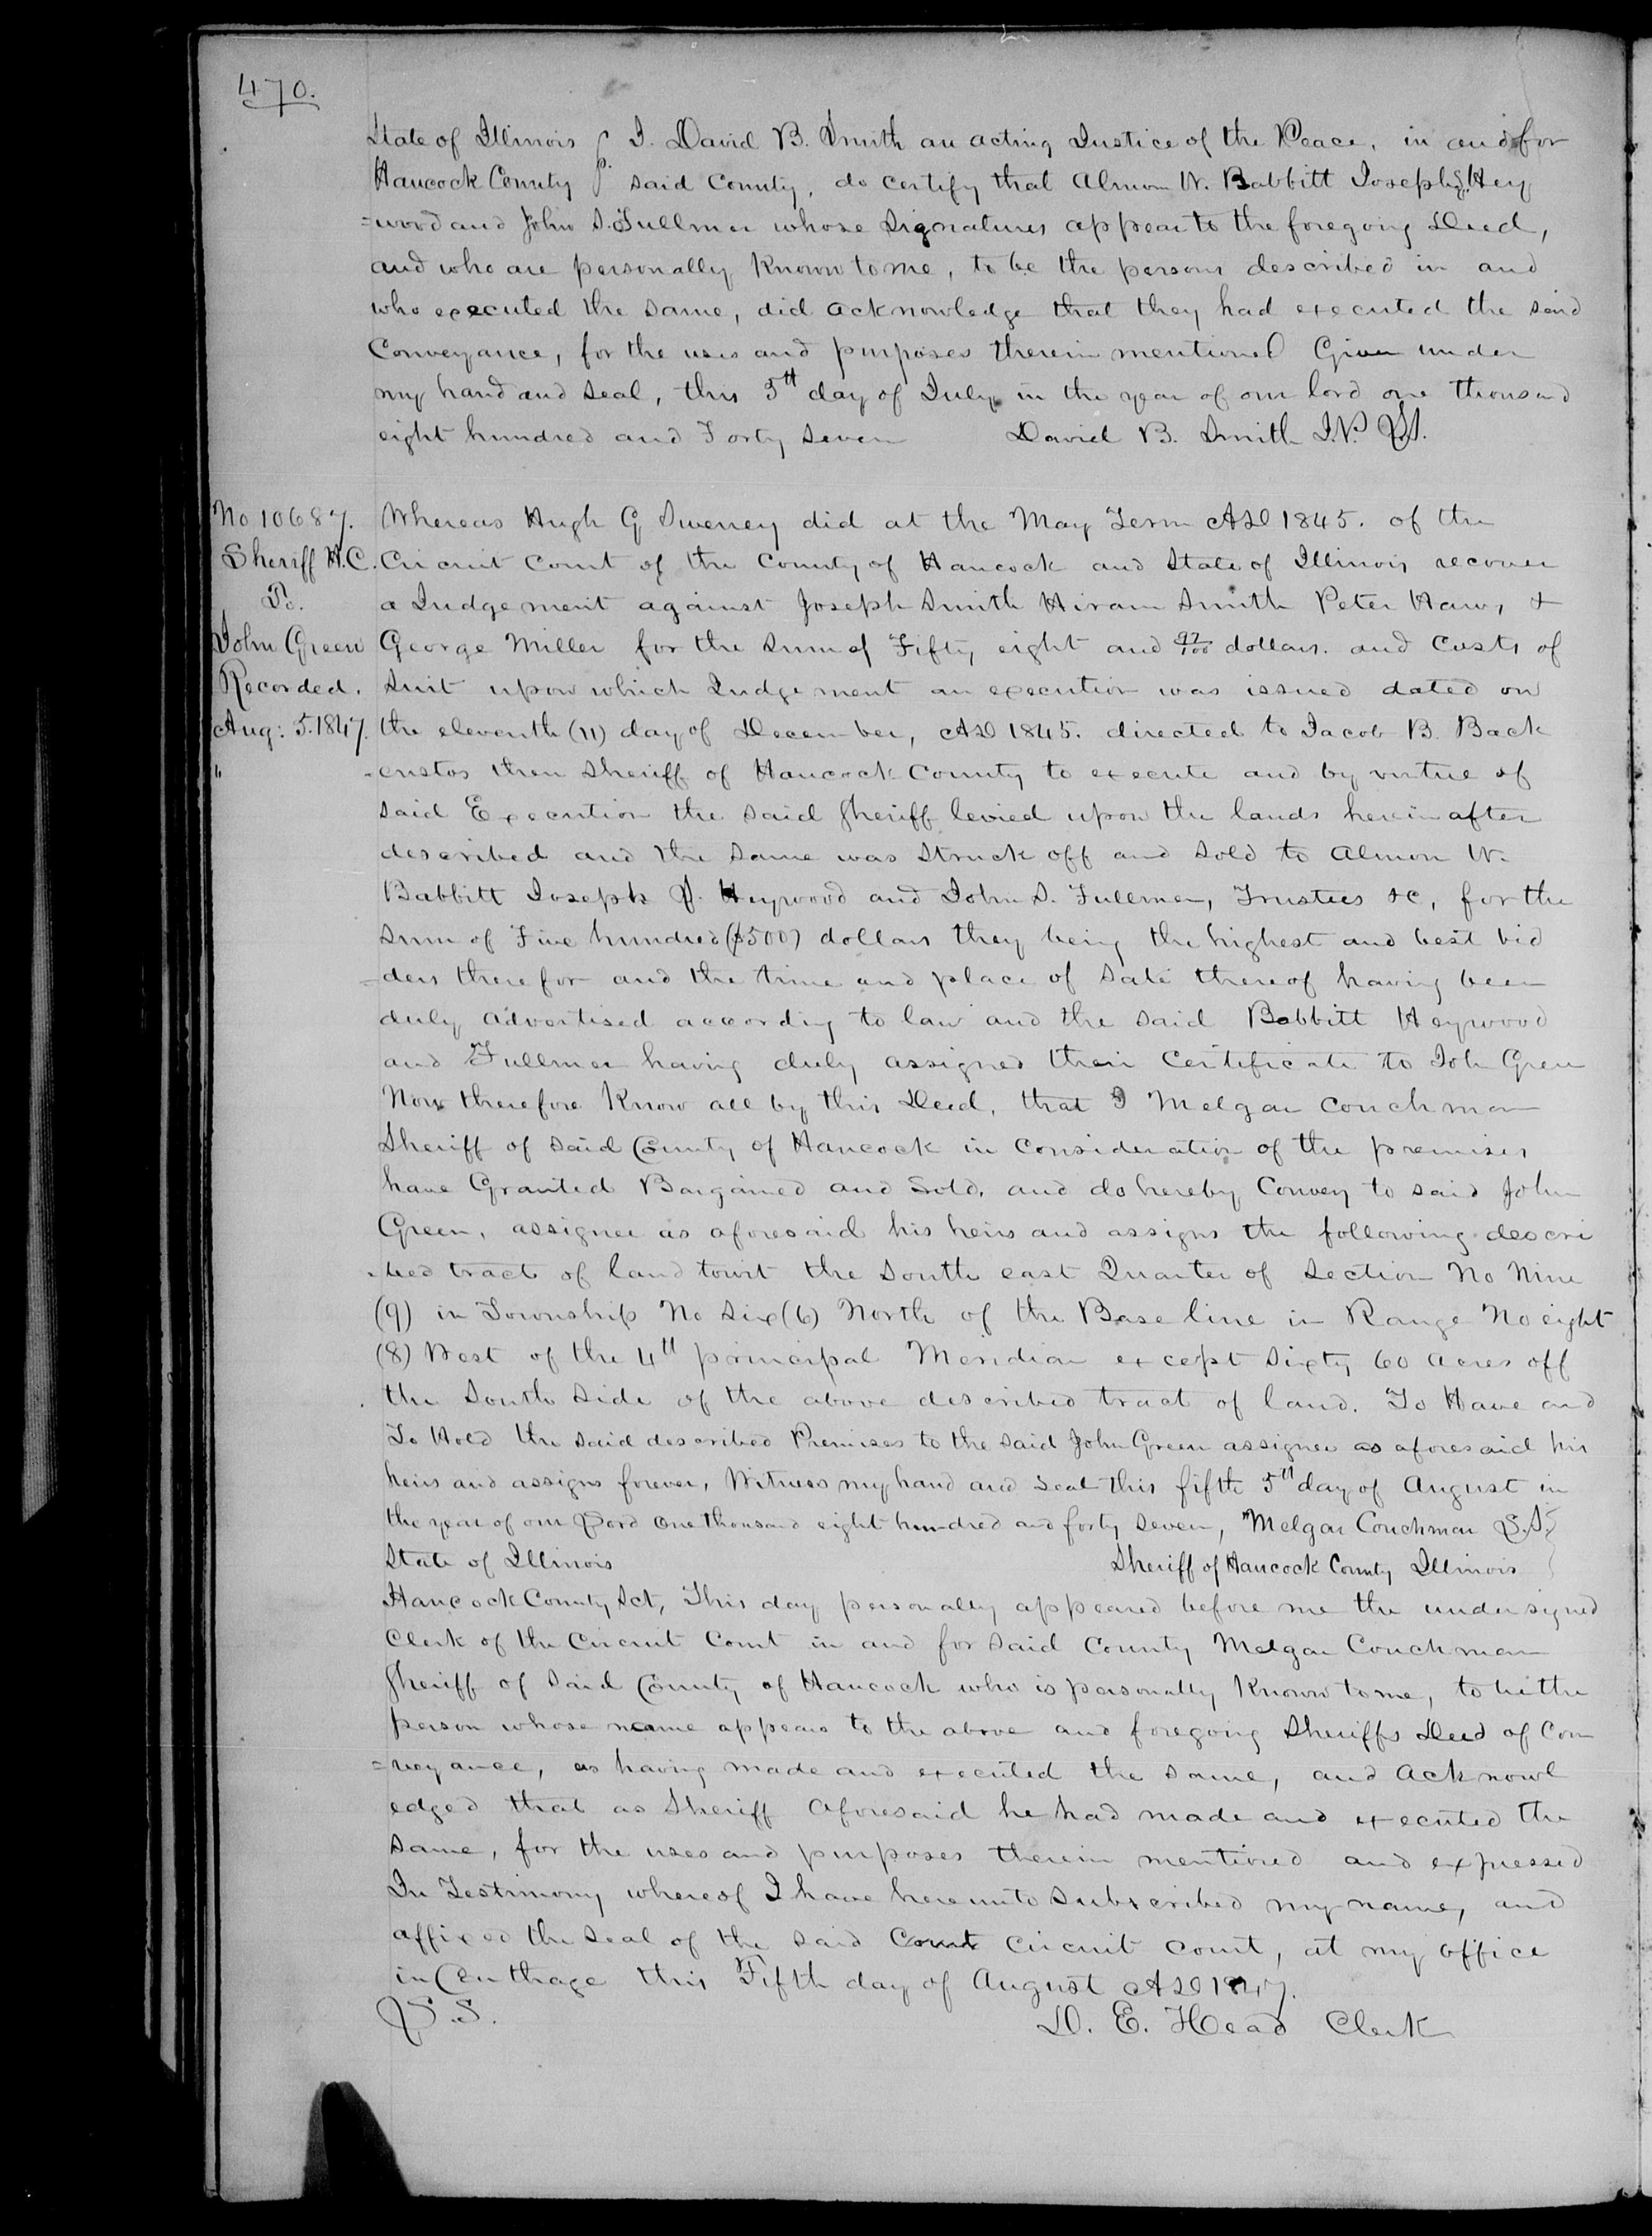 470.
State of Illinois } I. David B. Smith an acting Justice of the Peace, in and for
Hancock County } s. said County, do certify that Almon W. Babbitt Joseph L. Hey
=wood and John S. Fullmer whose Signatures appear to the foregoing Deed,
and who are personally Known to me, to be the persons described in and
who executed the same, did acknowledge that they had executed the said
Conveyance, for the uses and purposes therein mentioned Given under
my hand and seal, this 5th day of July in the year of our lord one thousand
eight hundred and Forty seven David B. Smith J.P. LS.
No 10687.
Sheriff H.C.
To.
John Green
Recorded.
Aug: 5. 1847.
"
Whereas Hugh G Sweney did at the May Term AD 1845. of the
Circuit Court of the County of Hancock and State of Illinois recover
a Judgement against Joseph Smith Hiram Smith Peter Haws, +
George Miller for the sum of Fifty eight and 97/100 dollars. and Costs of
suit upon which Judgement an execution was issued dated on
the eleventh (11) day of December, AD 1845. directed to Jacob B. Back
=enstos then sheriff of Hancock County to execute and by virtue of
said Execution the said sheriff levied upon the lands herein after
described and the same was struck off and sold to Almon W.
Babbitt Joseph L. Heywood and John S. Fullmer, Trustees &c, for the
sum of Five hundred ($500) dollars they being the highest and best bid
=ders therefor and the time and place of sale thereof having been
duly advertised according to law and the said Babbitt Heywood
and Fullmer having duly assigned their Certificate to Joh Green
Now therefore Know all by this Deed, that I Melgar Couchman
Sheriff of said County of Hancock in Consideration of the premises
have Granted Bargained and Sold, and do hereby Convey to said John
Green, assignee as aforesaid his heirs and assigns the following descri
=bed tract of land towit the South east Quarter of Section No Nine
(9) in Township No Six (6) North of the Base line in Range No eight
(8) West of the 4th principal Meridian except Sixty 60 Acres off
the South side of the above described tract of land. To Have and
To Hold the said described Premises to the said John Green assignee as aforesaid his
heirs and assigns forever, Witness my hand and seal this fifth 5th day of August in
the year of our Lord one thousand eight hundred and forty seven, Melgar Couchman L.S.
State of Illinois Sheriff of Hancock County Illinois
Hancock County Sct, This day personally appeared before me the undersigned
Clerk of the Circuit Court in and for said County Melgar Couchman
sheriff of said County of Hancock who is personally Known to me, to be the
person whose name appears to the above and foregoing Sheriffs Deed of Con
=veyance, as having made and executed the same, and Acknowl
edged that as Sheriff aforesaid he had made and executed the
same, for the uses and purposes therein mentioned and expressed
In Testimony whereof I have hereunto subscribed my name, and
affixed the seal of the said Court Circuit Court, at my office
in Carthage this Fifth day of August AD 1847.
L.S. D. E. Head Clerk